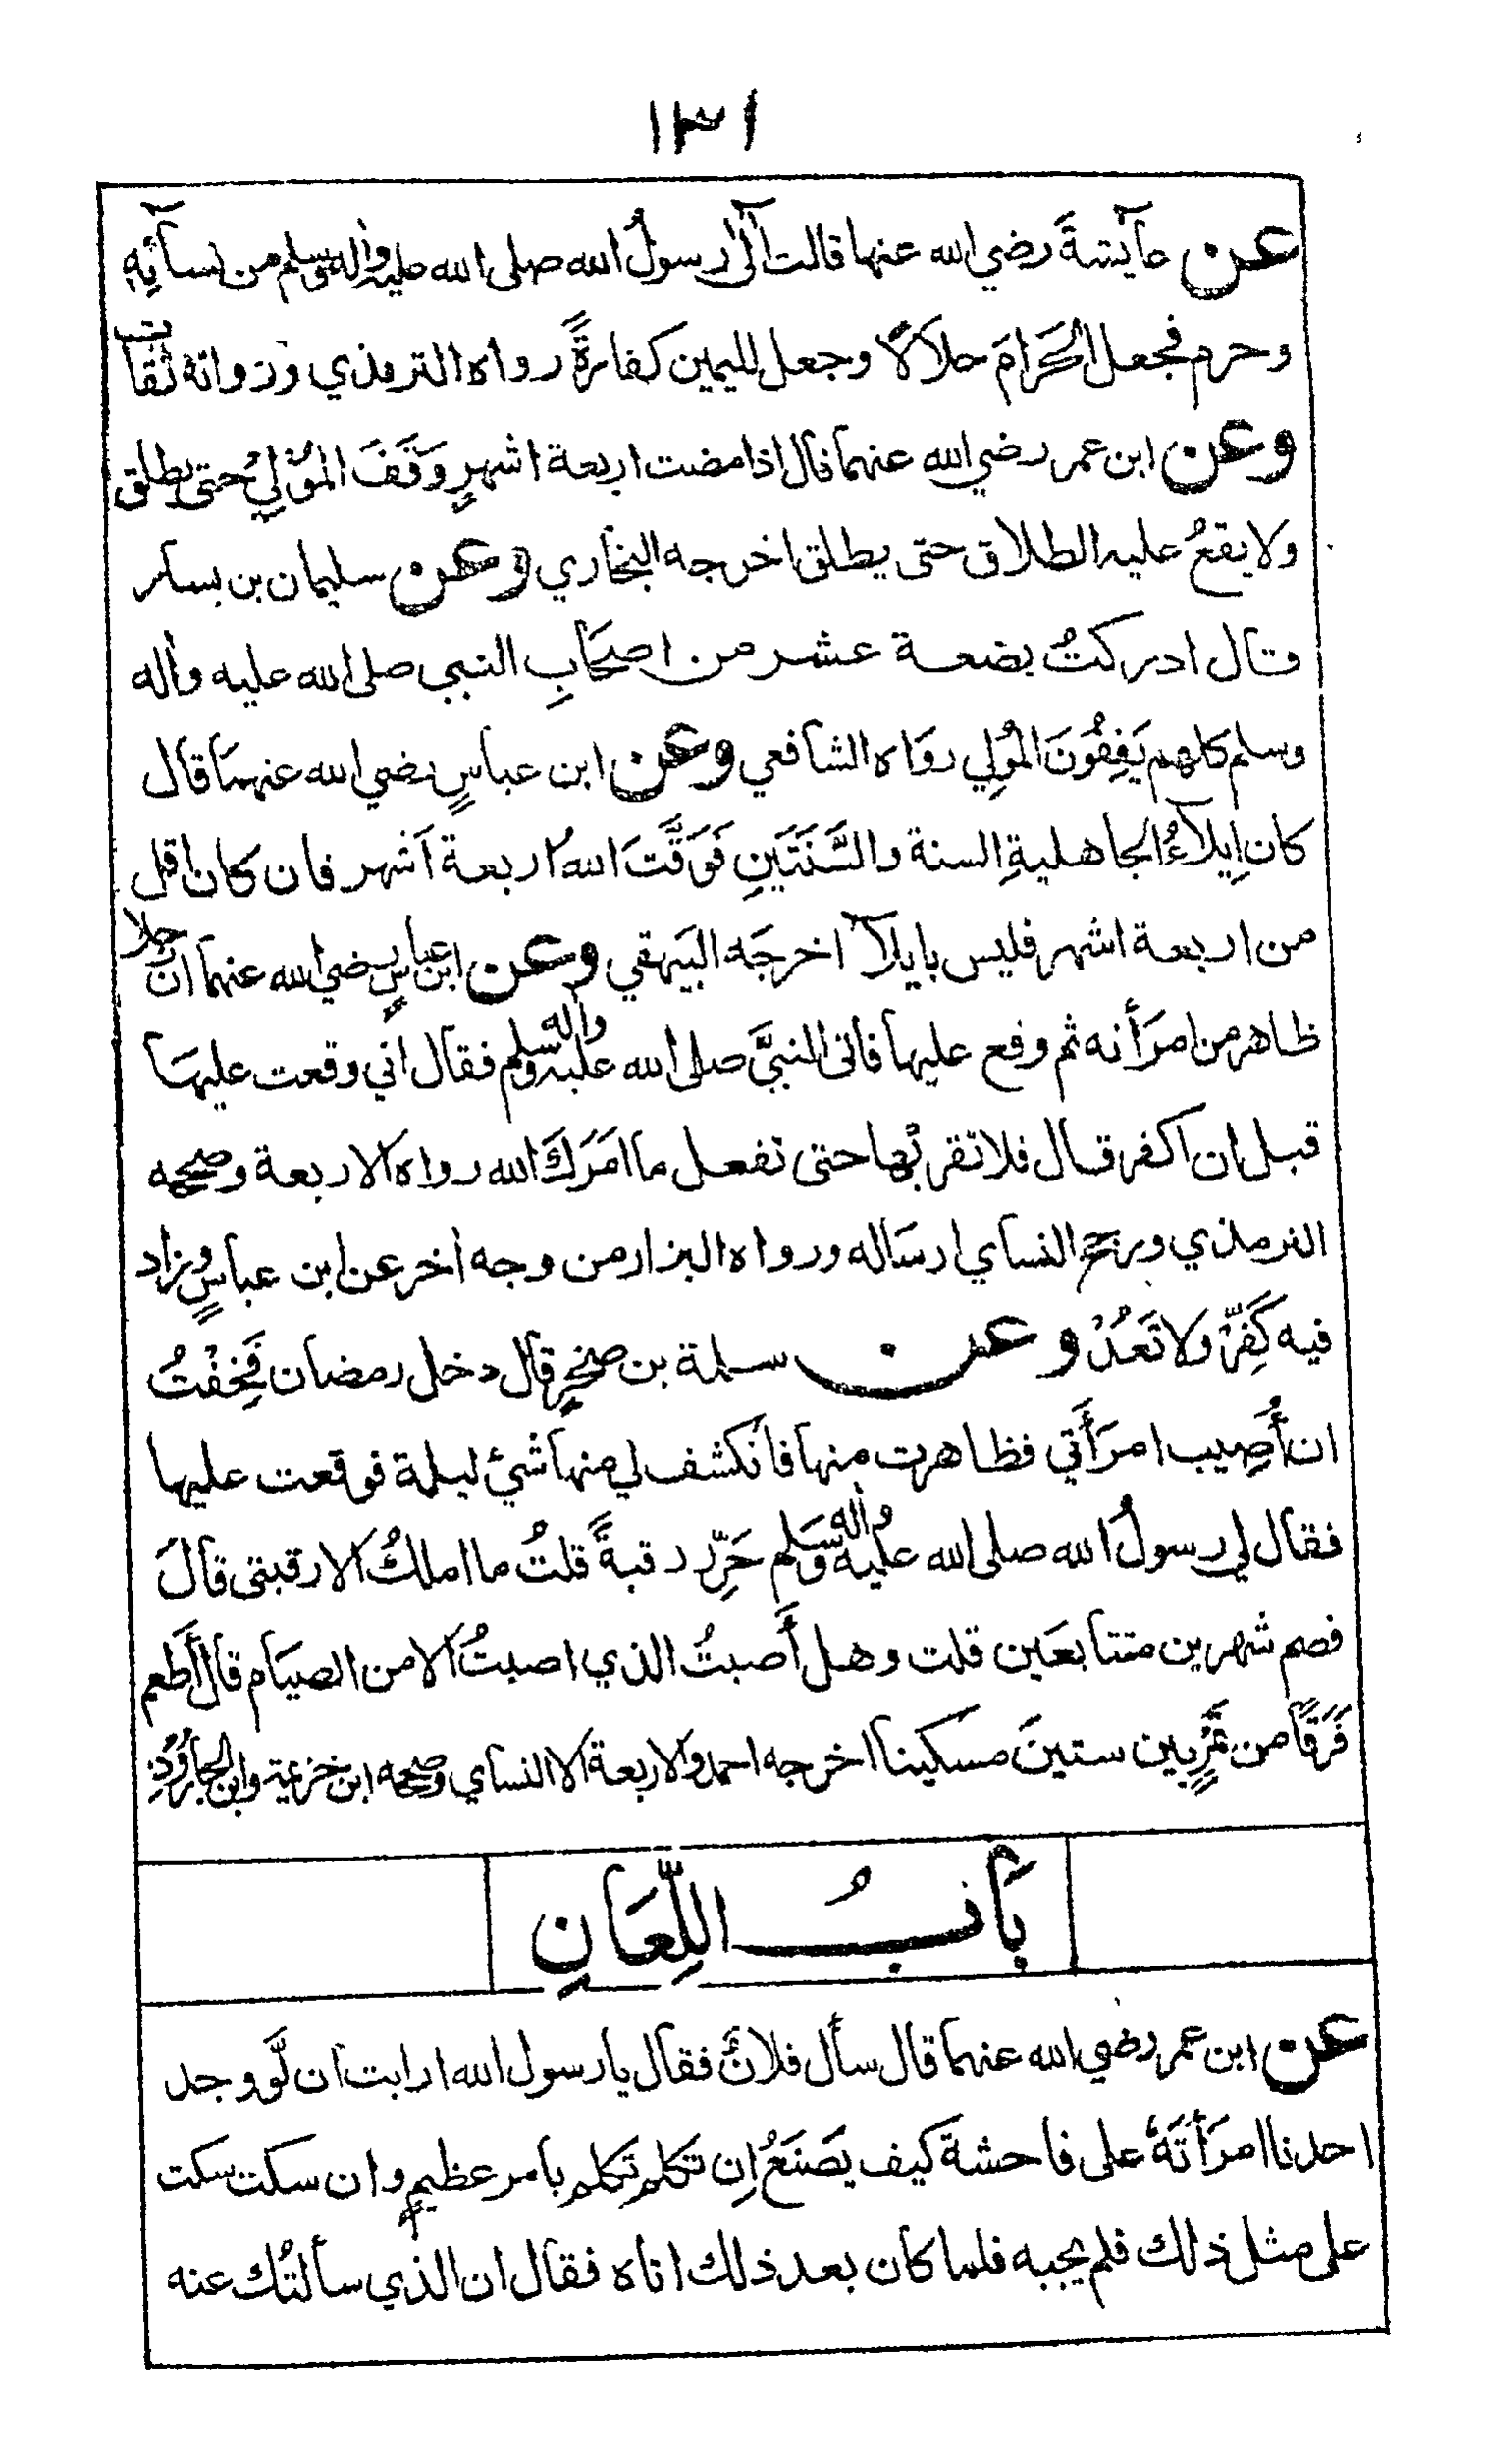 ١٣١
عن عآيشةَ رضي الله عنها قالت آلى رسولُ الله صلى الله عليه واٰله وسلم من نسآئِهٖ
وحرم فجعل الحَرامَ حلالاً وجعل لليمين كفارةً رواه الترمذي ورواته ثقات
وعن ابن عمر رضي الله عنهما قال اذا مضت اربعة اشهرٍ وَقَفَ المُؤْلِيْ حتى يطلق
ولا يقعُ عليه الطلاق حتى يطلق اخرجه البخاري وعن سليمان بن يسار
قال ادركتُ بضعة عشر من اصحَابِ النبي صلى الله عليه واٰله
وسلم كلهم يَقِفُونَ المُولِي روَاه الشافعي وعن ابن عباسٍ رضي الله عنهمَا قال
كان إِيلآءُ الجاهليةِ السنة والسَّنَتَينِ فَوَقَّتَ اللهُ اربعة اَشهر فان كان اقل
من اربعة اشهر فليس بايلآء اخرجَه البَيهقي وعن ابن عباسٍ رضي الله عنهما انَّ رجلا
ظاهر من امرَأته ثم وقع عليها فاتى النبيَّ صلى الله عليه واٰله وسلم فقال اني وقعت عليهَا
قبل ان اكفر قال فلا تقربْها حتى تفعل ما امَرَكَ الله رواه الاربعة وصححه
الترمذي ورجح النساي ارسَاله ورواه البزار من وجه اٰخر عن ابن عباسٍ وزاد
فيه كَفِّرْ ولا تَعُدْ وعن سلمة بن صخرٍ قال دخل رمضان فَخِفْتُ
ان أُصِيب امرَأَتي فظاهرت منها فانكشف لي منها شيْ ليلة فوقعت عليها
فقال لي رسولُ الله صلى الله عليه واٰله وسَلم حَرِّر رقبةً قلتُ ما املكُ الا رقبتى قالَ
فصم شهرين متتابعَين قلت وهل أَصبتُ الذي اصبتُ الا من الصيَام قال أَطعم
فَرَقًا من تمرٍ بين ستينَ مسَكينا اخرجه احمد والاربعة الا النساي وصححه ابن خزيمة وابن الجارُودِ
بَابُ اللِّعَانِ
عن ابن عمر رضي الله عنهما قال سأل فلانٌ فقال يا رسول الله ارايت ان لَّو وجد
احدنا امرَأتَهٗ على فاحشة كيف يَصنَعُ إِن تكلم تكلم بأمر عظيمٍ وان سكت سكت
على مثل ذلك فلم يجبه فلما كان بعد ذلك اتاه فقال ان الذي سألتُك عنه